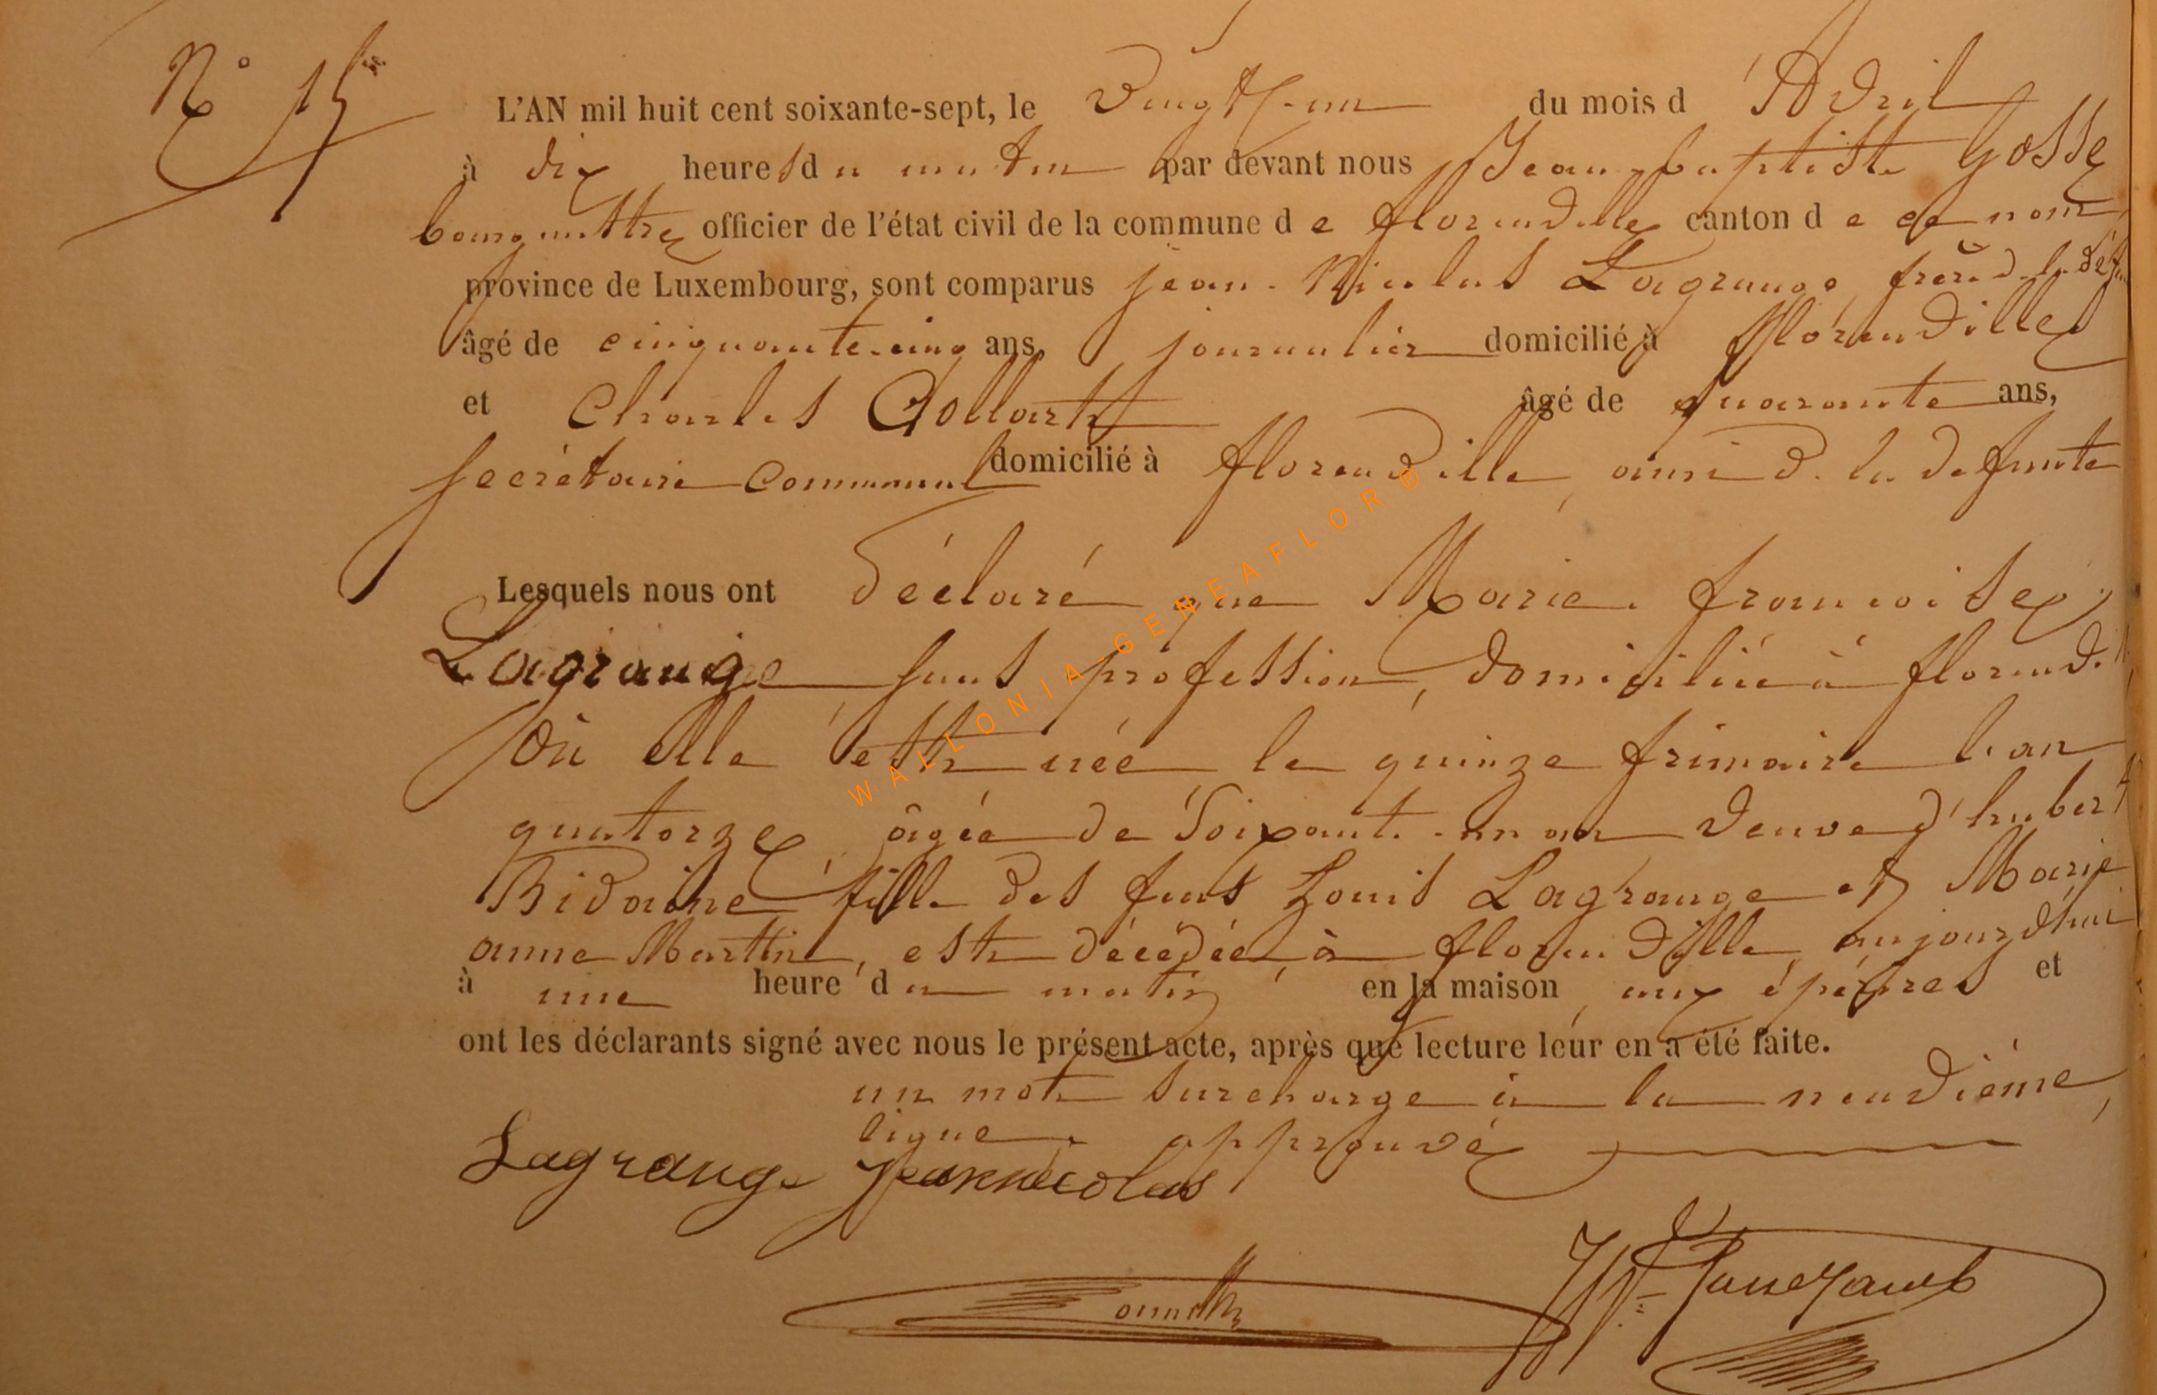 N° 15
L'AN mil huit cent soixante-sept, le vingt-un du mois d'Avril
à dix heures du matin par devant nous Jean-baptiste Gosse
bourgmestre officier de l'état civil de la commune de florenville canton de ce nom
province de Luxembourg, sont comparus jean-Nicolas Lagrange, frère de la
âgé de cinquante-cinq ans, journalier domicilié à florenville
et Charles Collart âgé de quarante ans,
secrétaire communal domicilié à florenville, ami de la defunte
Lesquels nous ont déclaré que Marie françoise
Lagrange sans profession, domiciliée à
où elle est née le quinze frimaire l'an
quatorze, âgée de soixante-un ans veuve d'hubert
Bidaine, fille des feus Louis Lagrange et Marie
anne Martin, est décédée à florenville, aujourd'hui
à une heure du matin, en la maison aux épéires et
ont les déclarants signé avec nous le présent acte, après que lecture leur en a été faite.
un mot surcharge à la neuvième
ligne approuvé
Lagrange Jean nicolas
WALLONIA-GENEAFLORE